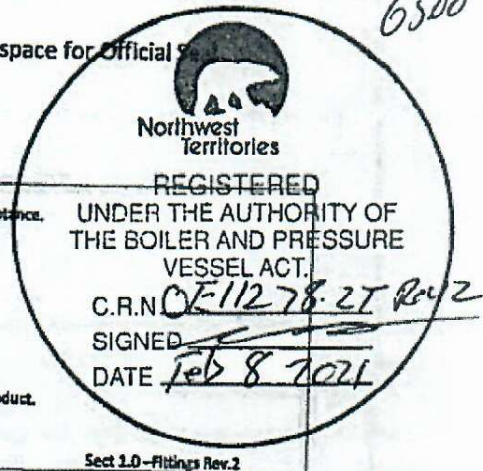 6500
space for Official Seal
Northwest
Territories
REGISTERED
ptance.
UNDER THE AUTHORITY OF
THE BOILER AND PRESSURE
VESSEL ACT.
C.R.N OE11278.2T Rev 2
SIGNED
DATE Feb 8 2021
oduct.
Sect 1.0-Fittings Rev.2